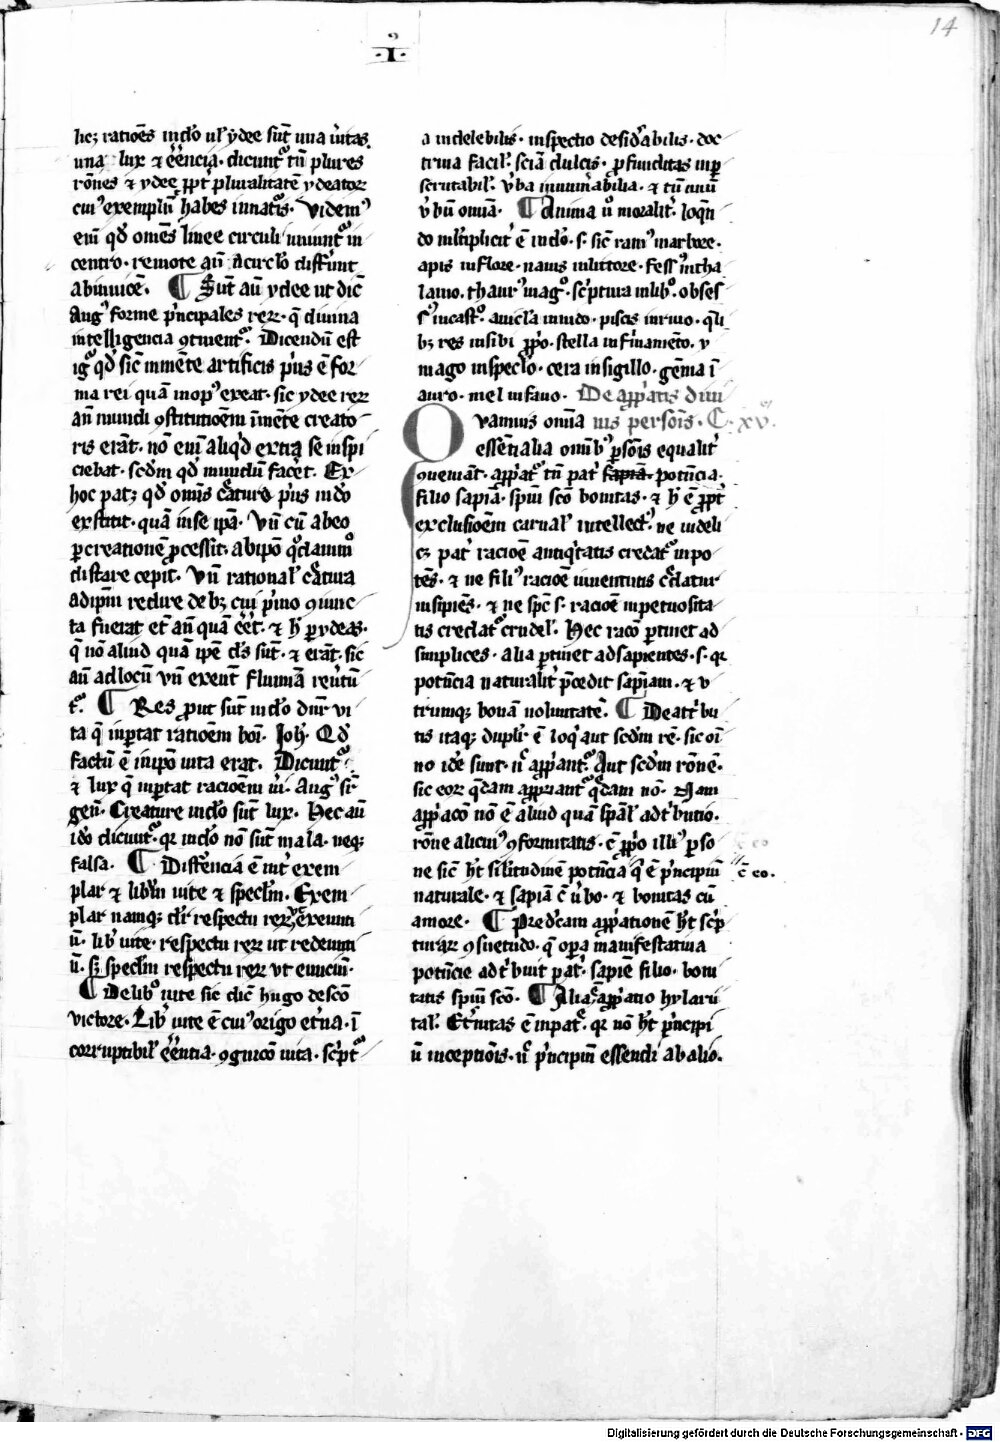 14
·I·
hec rationes in deo vel ydee sunt una veritas
una lux et essencia. dicuntur tamen plures
rones et ydee propter pluralitatem ydeatorum
cuius exemplum habes in naturis. Videmus
enim quod omnes linee circuli uniuntur in
centro. remote autem a circulo differunt
abinvicem. ¶ Sunt autem ydee ut dicit
Augus forme principales rerum. que divina
intelligencia continentur. Dicendum est
igitur quod sicut in mente artificis prius est for
ma rei quam in opus exeat. sic ydee rerum
ante mundi constitutionem in mente creato
ris erant. non enim aliquid extra se inspi
ciebat. secundum quod mundum faceret. Ex
hoc patet quod omnis creatura prius in deo
exstitit. quam in se ipsa. Unde cum ab eo
per creationem processit. ab ipso quodammodo
distare cepit. Unde rationalis creatura
ad ipsum redire debet cui primo coniunc
ta fuerat etiam antequam esset. et hoc per ydeas.
que non aliud quam ipse deus sunt. et erant. sic
autem ad locum unde exeunt flumina revertun
tur. ¶ Res prout sunt in deo dicuntur vi
ta que importat rationem boni. Joh. Quod
factum est in ipso vita erat. Dicuntur
et lux que importat racionem veri. Aug super
gen. Creature in deo sunt lux. Hec autem
ideo dicuntur. quia in deo non sunt mala. neque
falsa. ¶ Differencia est inter exem
plar et librum vite et speculum. Exem
plar namque dicitur respectu rerum ut exeunti
um. liber vite. respectu rerum ut redeunti
um. sed speculum respectu rerum ut euncium.
¶ De libro vite sic dicit hugo de sancto
victore. Liber vite est cuius origo eterna. in
corruptibilis essentia. cognicio vita. scriptur
a indelebilis. inspectio desiderabilis. doc
trina facilis. sciencia dulcis. profunditas imper
scrutabilis. verba innumerabilia. et tamen unum
verbum omnia. ¶ Anima vero moraliter loquen
do multipliciter est in deo. s. sicut ramus in arbore.
apis in flore. navis in littore. fessus in tha
lamo. thaurus in agro. scriptura in libro. obses
sus in castro. avicla in nido. piscis in rivo. quili
bet res in sibi proprio. stella in firmamento. y
mago in speculo. cera in sigillo. gemma in
auro. mel in favo. De appropriatis divi
Quamvis omnia nis personis. C. xv.
essentialia omnibus personis equaliter
conveniant. appropriatur tamen patri sapiencia potencia.
filio sapiencia. spiritui sancto bonitas. et hoc est propter
exclusionem carnalis intellectus. ne videli
cet pater racione antiquitatis credatur inpo
tens. et ne filius racione iuventutis credatur
insipiens. et ne spiritus s. racione inpetuosita
tis credatur crudelis. Hec racio pertinet ad
simplices. alia pertinet ad sapientes. s. quia
potencia naturaliter precedit sapienciam. et u
trumque bonam voluntatem. ¶ De attribu
tis itaque dupliciter est loqui aut secundum rem. sic omni
no idem sunt. nec appropriantur. Aut secundum ronem.
sic eorum quedam appropriantur quedam non. Nam
appropriacio non est aliud quam specialis adtributio.
rone alicuius conformitatis. cum proprio illius perso
ne sicut habet similitudinem potencia que est principium cum eo.
naturale. et sapiencia cum verbo. et bonitas cum
amore. ¶ Predictam appropriationem habet scrip
turarum consuetudo. que opera manifestativa
potencie adtribuit patri. sapiencie filio. boni
tatis spiritui sancto. ¶ Alia est appropriatio hylarii
talis. Eternitas est in patre. quia non habet principi
um incepcionis. nec principium essendi ab alio.
Digitalisierung gefördert durch die Deutsche Forschungsgemeinschaft - DFG